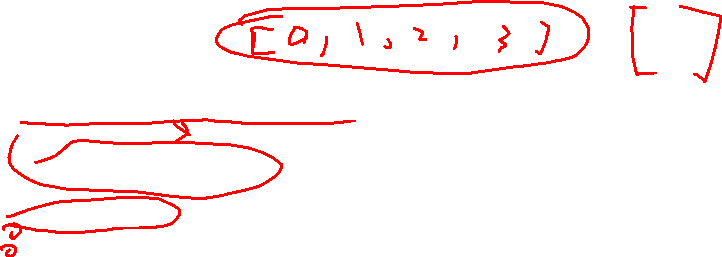 [0,1,2,3] []